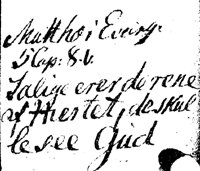 Matthæi Evang:
5 Cap: 8. v.
Salige ere de rene
af Hiertet, de skul
le see Gud